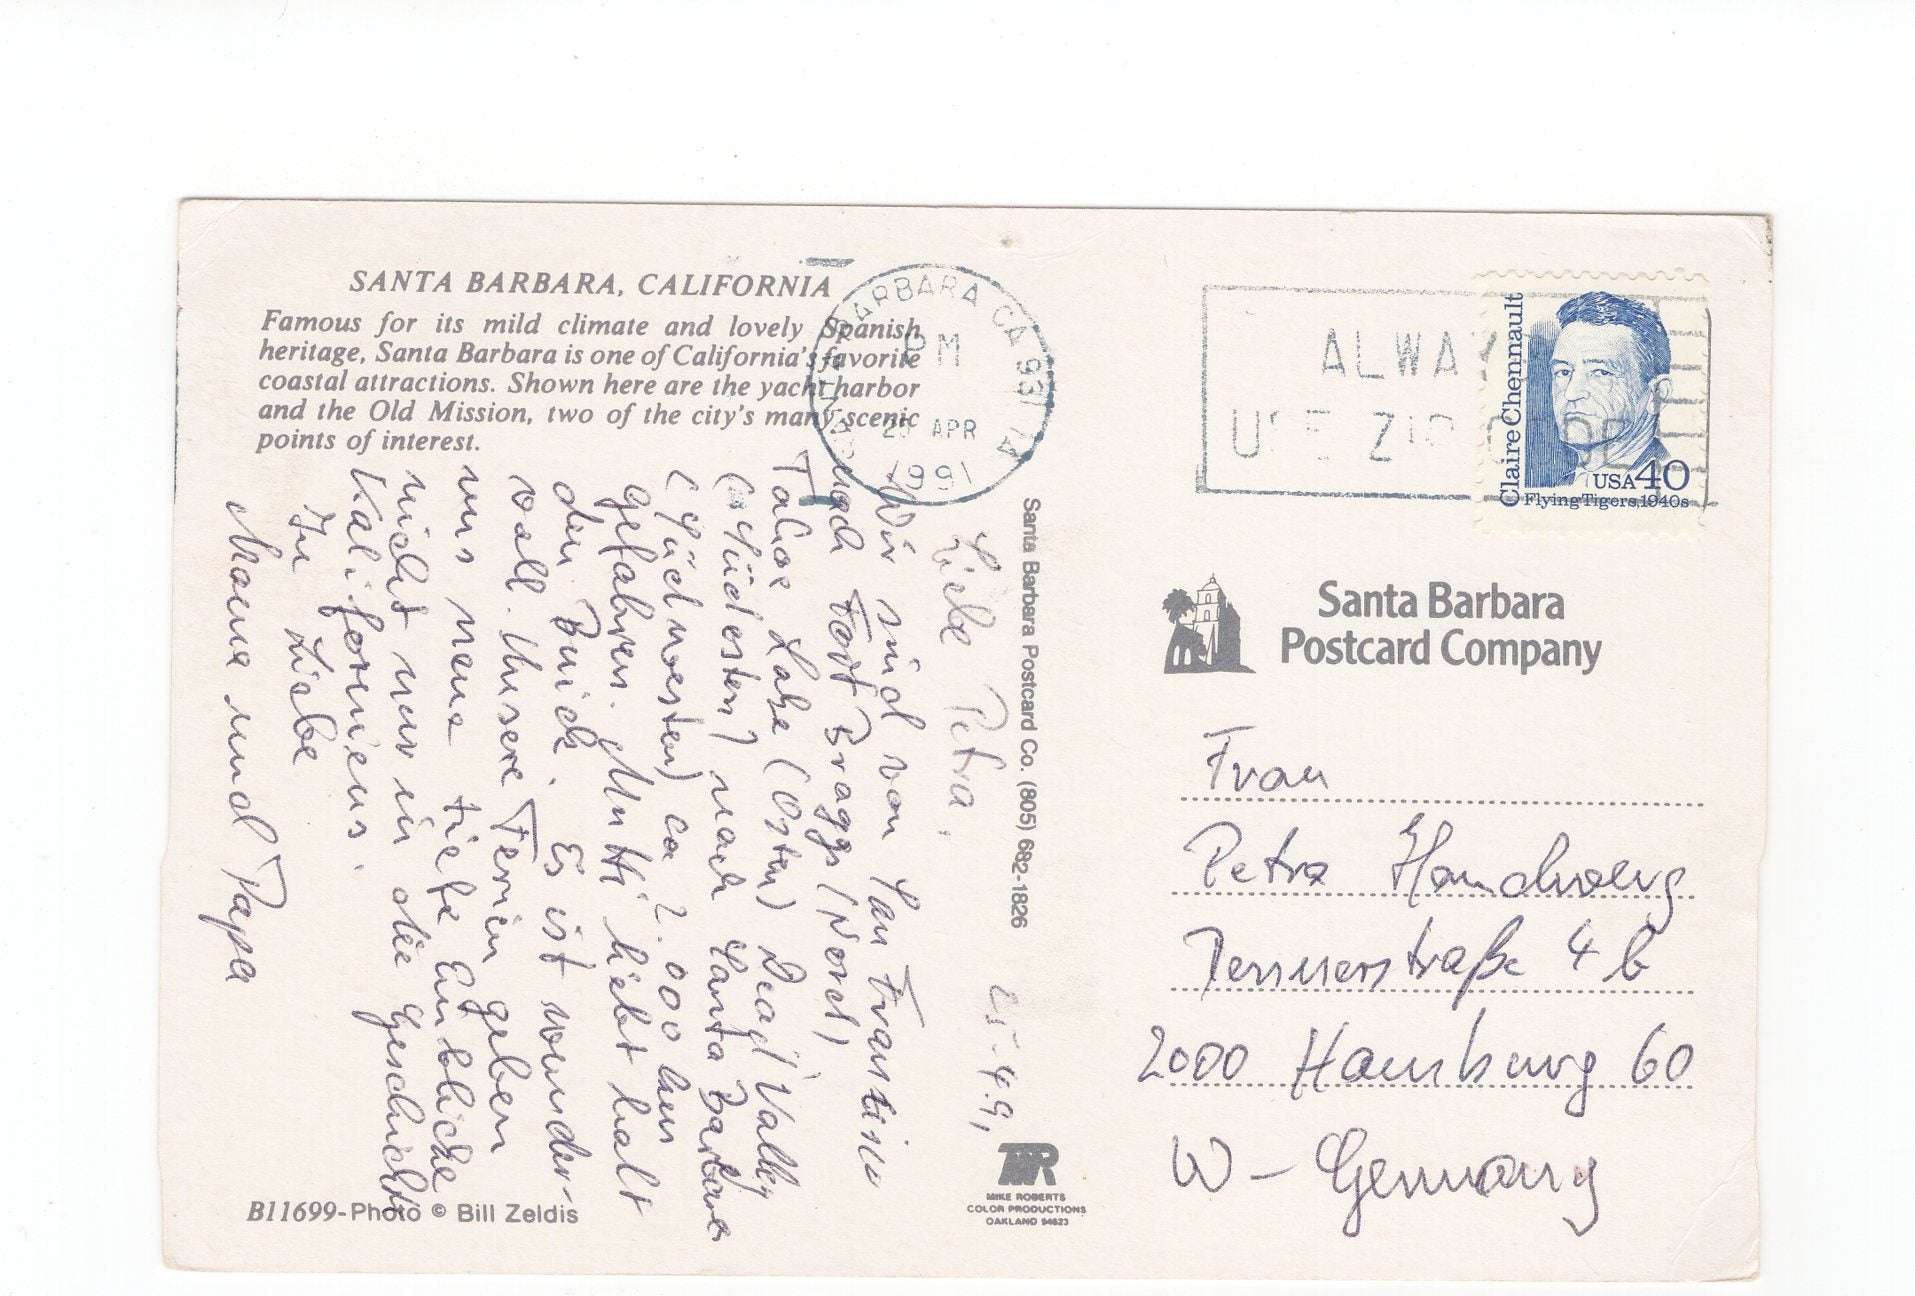 SANTA BARBARA, CALIFORNIA
Famous for its mild climate and lovely Spanish
heritage, Santa Barbara is one of California's favorite
coastal attractions. Shown here are the yacht harbor
and the Old Mission, two of the city's many scenic
points of interest.
SANTA BARBARA CA 931
PM
APR
1991
ALWAY
USE ZIP CODE
Claire Chennault
USA 40
Flying Tigers, 1940s
Santa Barbara
Postcard Company
Santa Barbara Postcard Co. (805) 682-1826
25.4.91
Liebe Petra,
Wir sind von San Franzisco
nach Fort Bragg (Nord)
Tahoe Lake (Osten) Dead Valley
(Südosten) nach Santa Barbara
(Südwesten) ca 2.000 km
gefahren. Mutti liebt halt
den Buick. Es ist wunder-
voll. Unsere Ferien geben
uns neue tiefe Einblicke
nicht nur in die Geschichte
Kaliforniens.
In Liebe
Mama und Papa
Frau
Petra Handwerg
4 b
2000 Hamburg 60
W-Germany
B11699-Photo © Bill Zeldis
MIKE ROBERTS
COLOR PRODUCTIONS
OAKLAND 94623